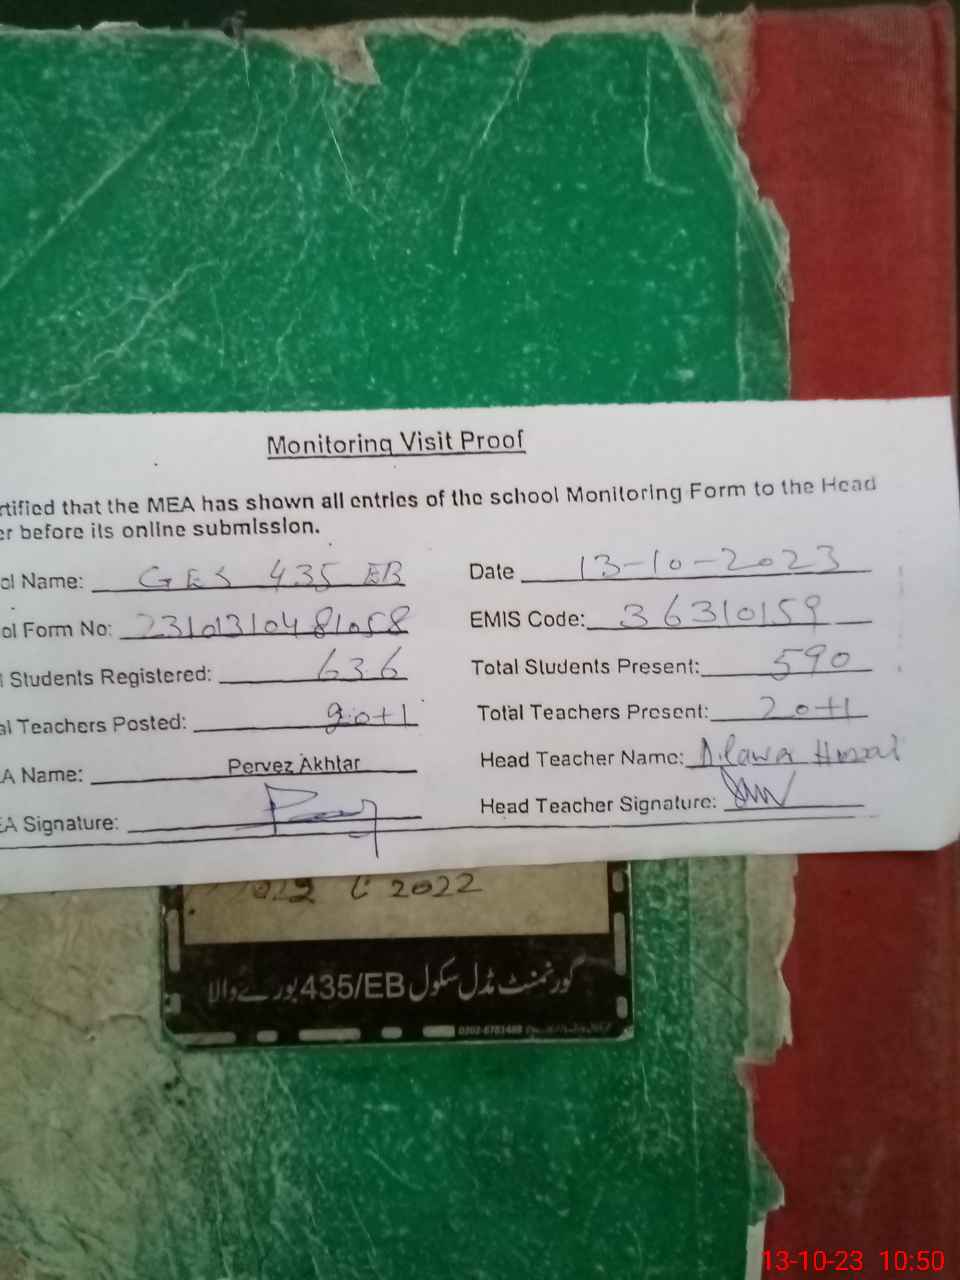 Monitoring Visit Proof
rtified that the MEA has shown all entries of the school Monitoring Form to the Head
er before its online submission.
ol Name: GES 435 EB Date 13-10-2023
ol Form No: 23101310481058 EMIS Code: 36310159
l Students Registered: 636 Total Students Present: 590
al Teachers Posted: 20+1 Total Teachers Present: 20+1
A Name: Pervez Akhtar Head Teacher Name:
EA Signature: Head Teacher Signature:
2022
گورنمنٹ مڈل سکول 435/EB بورے والا
13-10-23 10:50